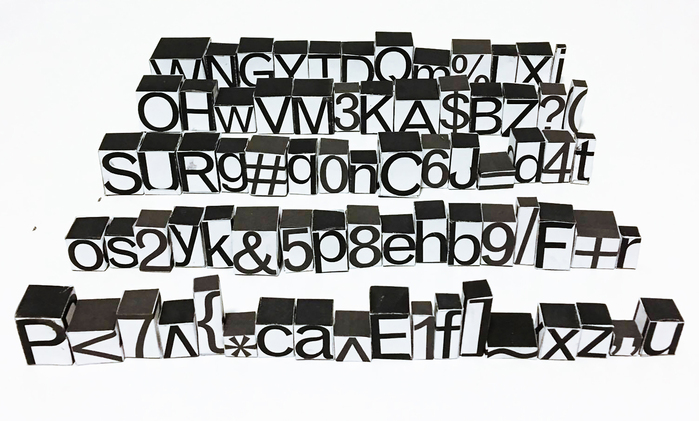 WNGYTDQm%LXi
OHwVM3KA$BZ?(
SURg#q0nC6J_d4t
os2yk&5p8ehb9/F+r
P<7v{*ca^E1f]~xz"u